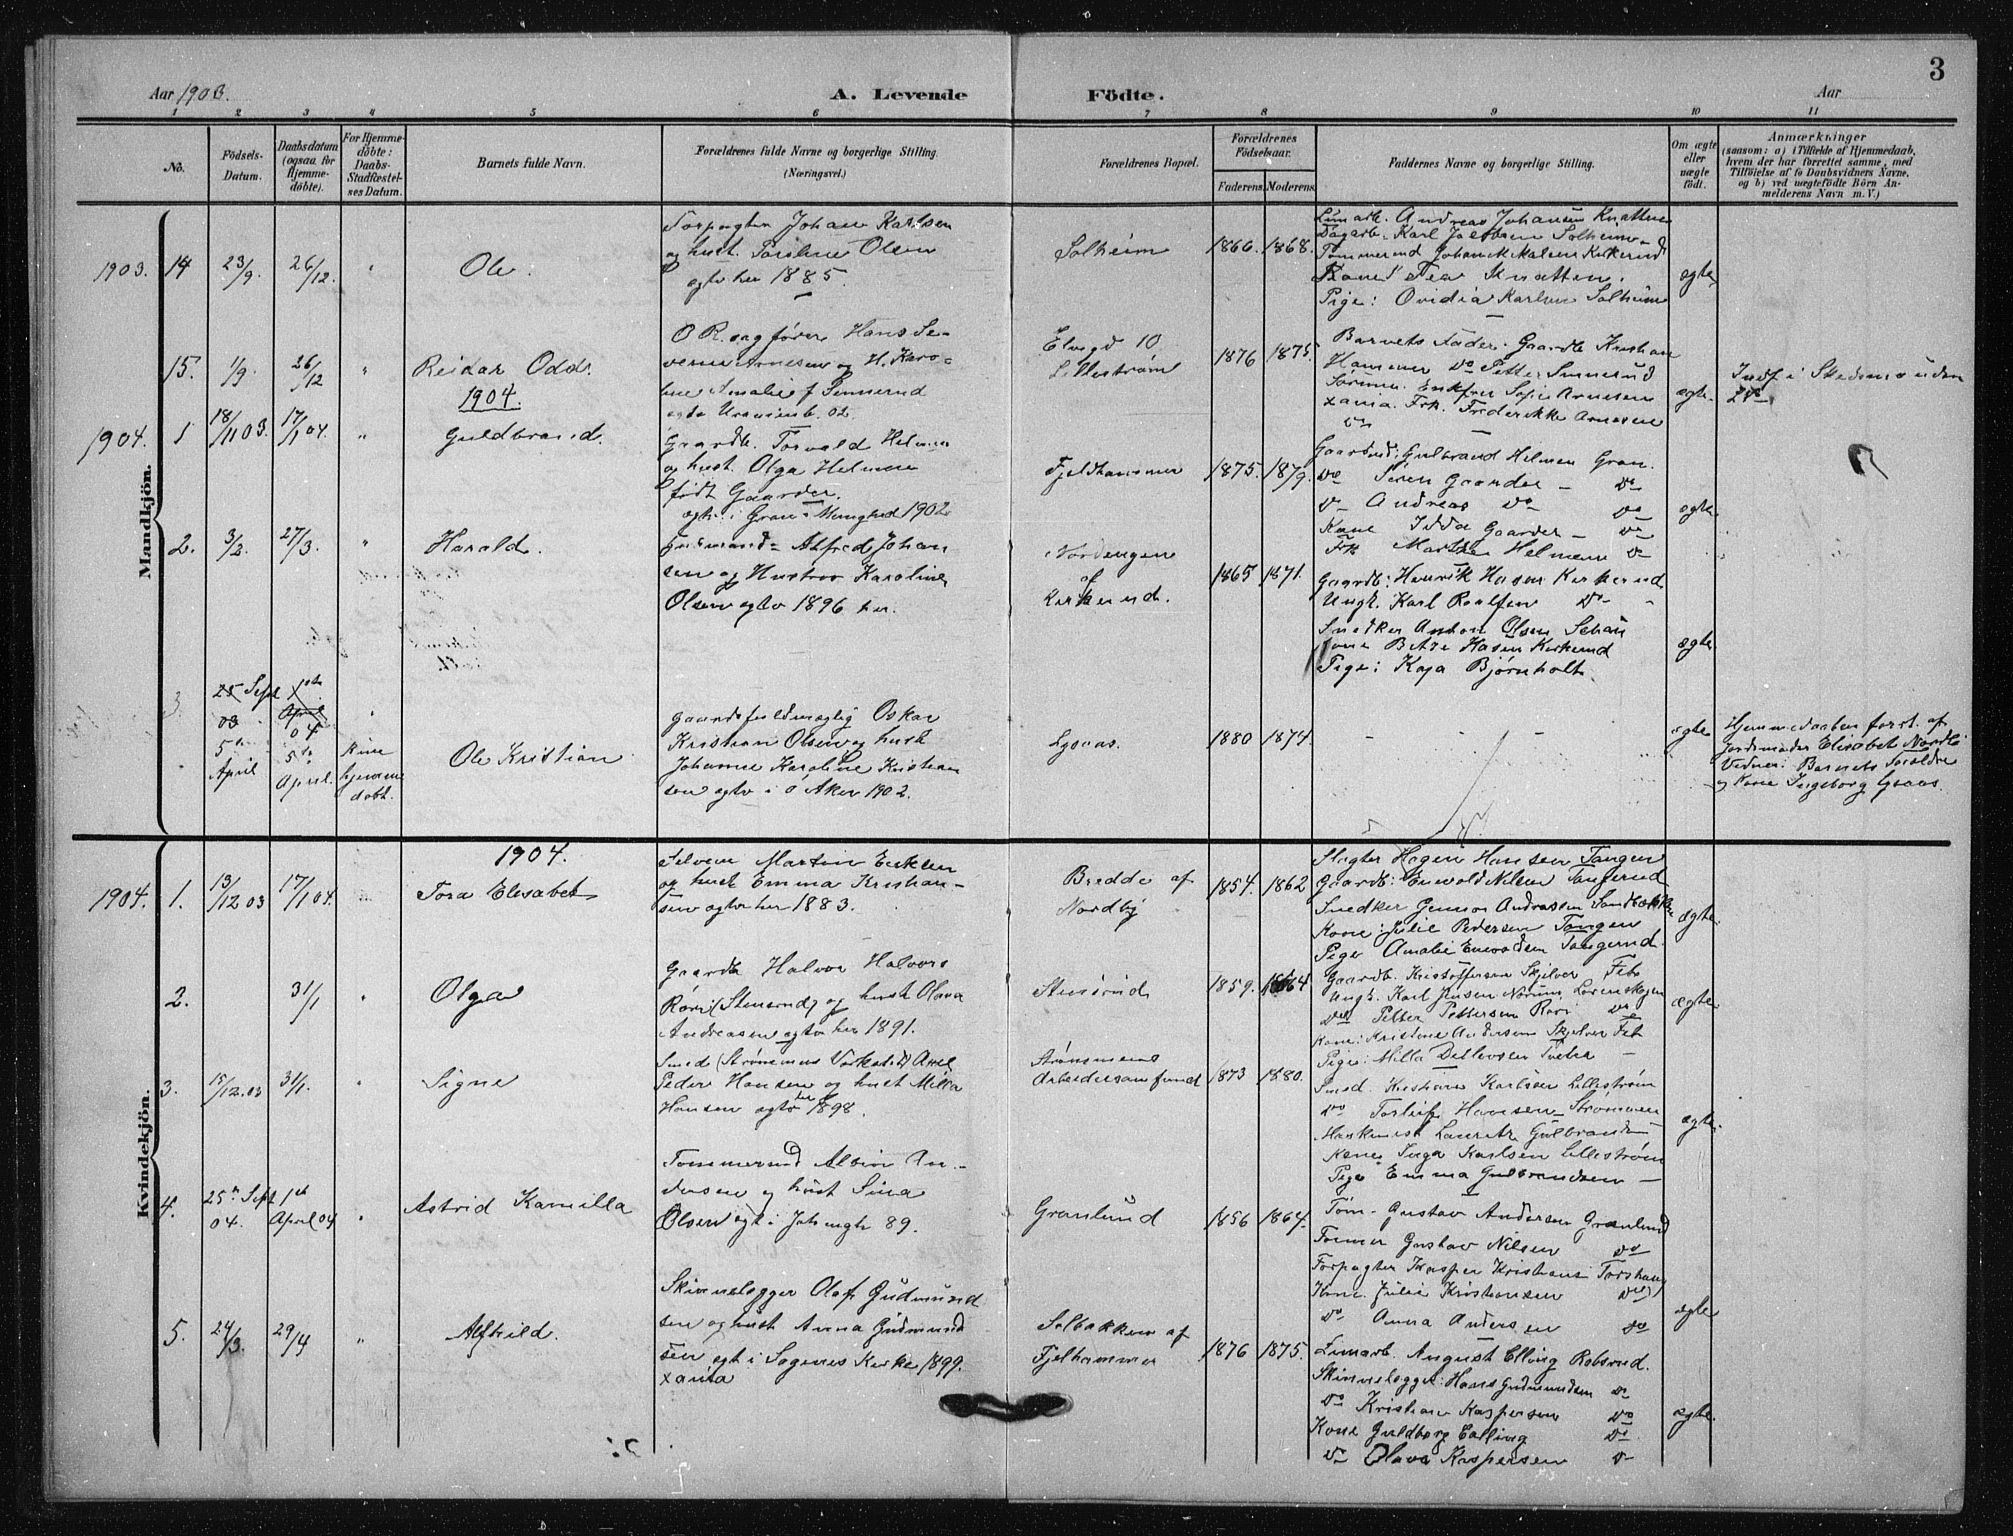 3
Aar 1903.
A. Levende
Födte.
Aar
1 2 3 4 5 6 7 8 9 10 11
No.
Födsels-
Datum.
Daabsdatum
(ogsaa for
Hjemme-
döbte).
For Hjemme-
döbte:
Daabs-
Stadfæstel-
ses Datum.
Barnets fulde Navn.
Forældrenes fulde Navne og borgerlige Stilling.
(Næringsvei.)
Forældrenes Bopæl.
Forældrenes
Födselsaar.
Faderens. Moderens.
Faddernes Navne og borgerlige Stilling.
Om ægte
eller
uægte
födt.
Anmærkninger
(saasom: a) i Tilfælde af Hjemmedaab,
hvem der har forrettet samme, med
Tilföielse af to Daabsvidners Navne,
og b) ved uægtefödte Börn An-
melderens Navn m. V.)
Mandkjön.
1903. 14 23/9. 26/12. " Ole.
Johan Karlsen
og hust. Olsen
ægtv her 1885.
Solheim
1860. 1868.
Andreas Johansen Knatten
Dagarb. Karl Solheim
Knatten.
Pige: Ovidia Karlsen Solheim
ægte
15. 1/9. 26/12 " Reidar Odd.
O R.sagfører Hans Se-
verin Arnesen og H. Karo-
line Amalie f
Elvegd 10
Lillestrøm
1876 1875.
Barnets Fader. Gaardb Kristian
Hammer do Petter
Enkefru Sofie Arnesen
xania. Frk. Frederikke Arnesen
do
ægte.
Indf i Skedsmo uden
1904.
1904. 1 18/11 03. 17/1 04 " Guldbrand.
Gaardb. Torvald Helmen
og hust. Olga Helmen
født Gaarder.
ægtv. i Gran Menighed 1902.
Fjeldhammer
1875. 1879.
Gulbrand Helmen Gran.
do Søren Gaarder - do
do Andreas do do
Kone Idda Gaarder - do
Frk Marthe Helmen do
ægte.
2. 3/2. 27/3. " Harald.
Alfred Johan
sen og Hustro Karoline
Olsen ægtv 1896 her.
Nordengen
af
Kirkerud.
1865 1871.
Gaardb: Henrik Hasen Kirkerud
Ungk. Karl Roalfsen do
Snedker Anton Olsen
Kone Hasen Kirkerud
Pige: Kaja Bjørnholt.
ægte
3 25 Sept 03 1ste April 04 "
5te April 5te April Kine hjemme døbt.
Ole Kristian
Gaardsfuldmægtig Oskar
Kristian Olsen og hust
Johanne Karoline Kristian
sen ægtv i Ø Aker 1902.
Lysaas.
1880 1874.
ægte
Hjemmedaaben forr. af
Jordemoder Elisabet Nordli
Vidner: Barnets Forældre
og Kone Ingeborg Lysaas.
Kvindekjön.
1904.
1904. 1. 13/12 03 17/1 04. " Tora Elisabet
Martin
og hust Emma Kristian-
sen ægtv her 1883.
Bredde af
Nordby
1854. 1862
Slagter Hagen Hansen Tangen
Gaardb: Nilsen Tangerud
Snedker Gunnar Andreassen Sandbækken
Kone: Julie Pedersen Tangen
Pige Amalie Tangerud.
ægte
2. 31/1 " Olga
Gaardb Halvor Halvors
og hust Olava
Andreasen ægtv her 1891.
Stensrud
1859. 1864.
Gaardb. Kristoffersen Skjelver Fet
Ungk. Karl Jensen Norum, Lørenskogen
do Petter Pettersen do
Kone: Kristine Andersen Skjelver Fet
Pige: Milla
ægte
3. 15/12.03 31/1. " Signe
Smed (Strømmens Verksted) Axel
Peder Hansen og hust Milla
Hansen ægtv her 1898.
Strømmens
Arbeidersamfund
1873 1880.
Smed. Kristian Karlsen Lillestrøm
do Torleif Hansen Strømmen
Maskinist Lauritz Gulbrandsen
Kone Inga Karlsen Lillestrøm
Pige Emma Gulbrandsen -
ægte.
4. 25de Sept 04. 1ste April 04 " Astrid Kamilla
Tømmermd Albin An-
dersen og hust Sina
Olsen ægt i 89.
Granlund
1856 1864.
Tøm. Gustav Andersen Granlund
Former Gustav Nilsen do
Forpagter Kasper Kristians Torshaug
Kone. Julie Kristiansen do
do Anna Andersen do
ægte
5. 24/3. 29/4 " Alfhild.
Skinnelægger Olaf Gudmund
sen og hust Anna Gudmund
sen ægt i Sagenes Kirke 1899.
xania
Solbakken af
Fjelhammer
1876 1875.
Limarb. August Elling Robsrud.
Skinnelægger: Hans Gudmundsen do
do Kristian Kaspersen do
Kone Guldborg Elling do
do Olava Kaspersen do
ægte.